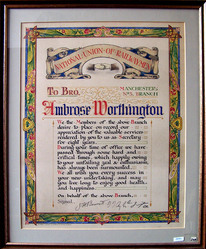 NATIONAL UNION OF RAILWAYMEN
To Bro.
MANCHESTER
No 5. BRANCH
Ambrose Worthington
We the Members of the above Branch
desire to place on record our
appreciation of the valuable services
rendered by you to us as Secretary
for eight years.
During your time of office we have
passed through some hard and
critical times, which happily owing
to your untiring zeal & enthusiasm,
has always been surmounted.
We all wish you every success in
your new undertaking, and may
you live long to enjoy good health
and happiness.
On behalf of the above Branch.
Signed